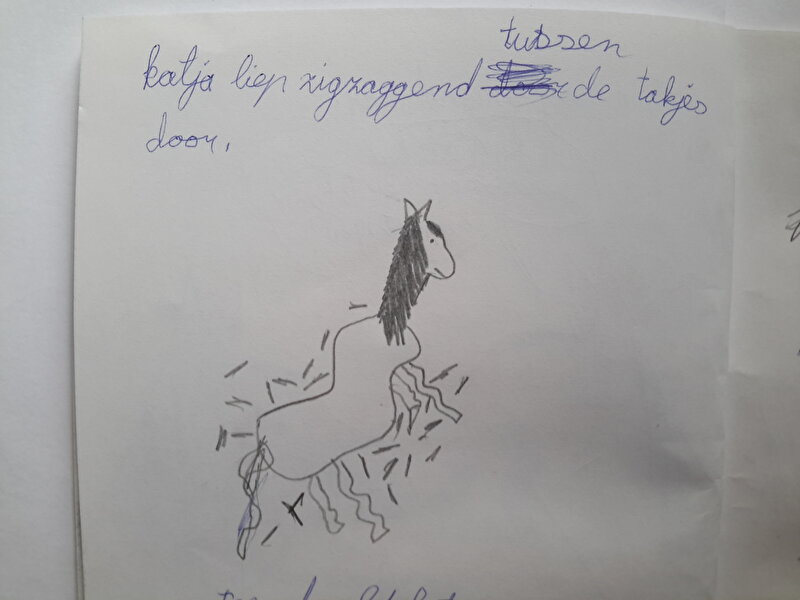 katja liep zigzaggend tussen de takjes
door.